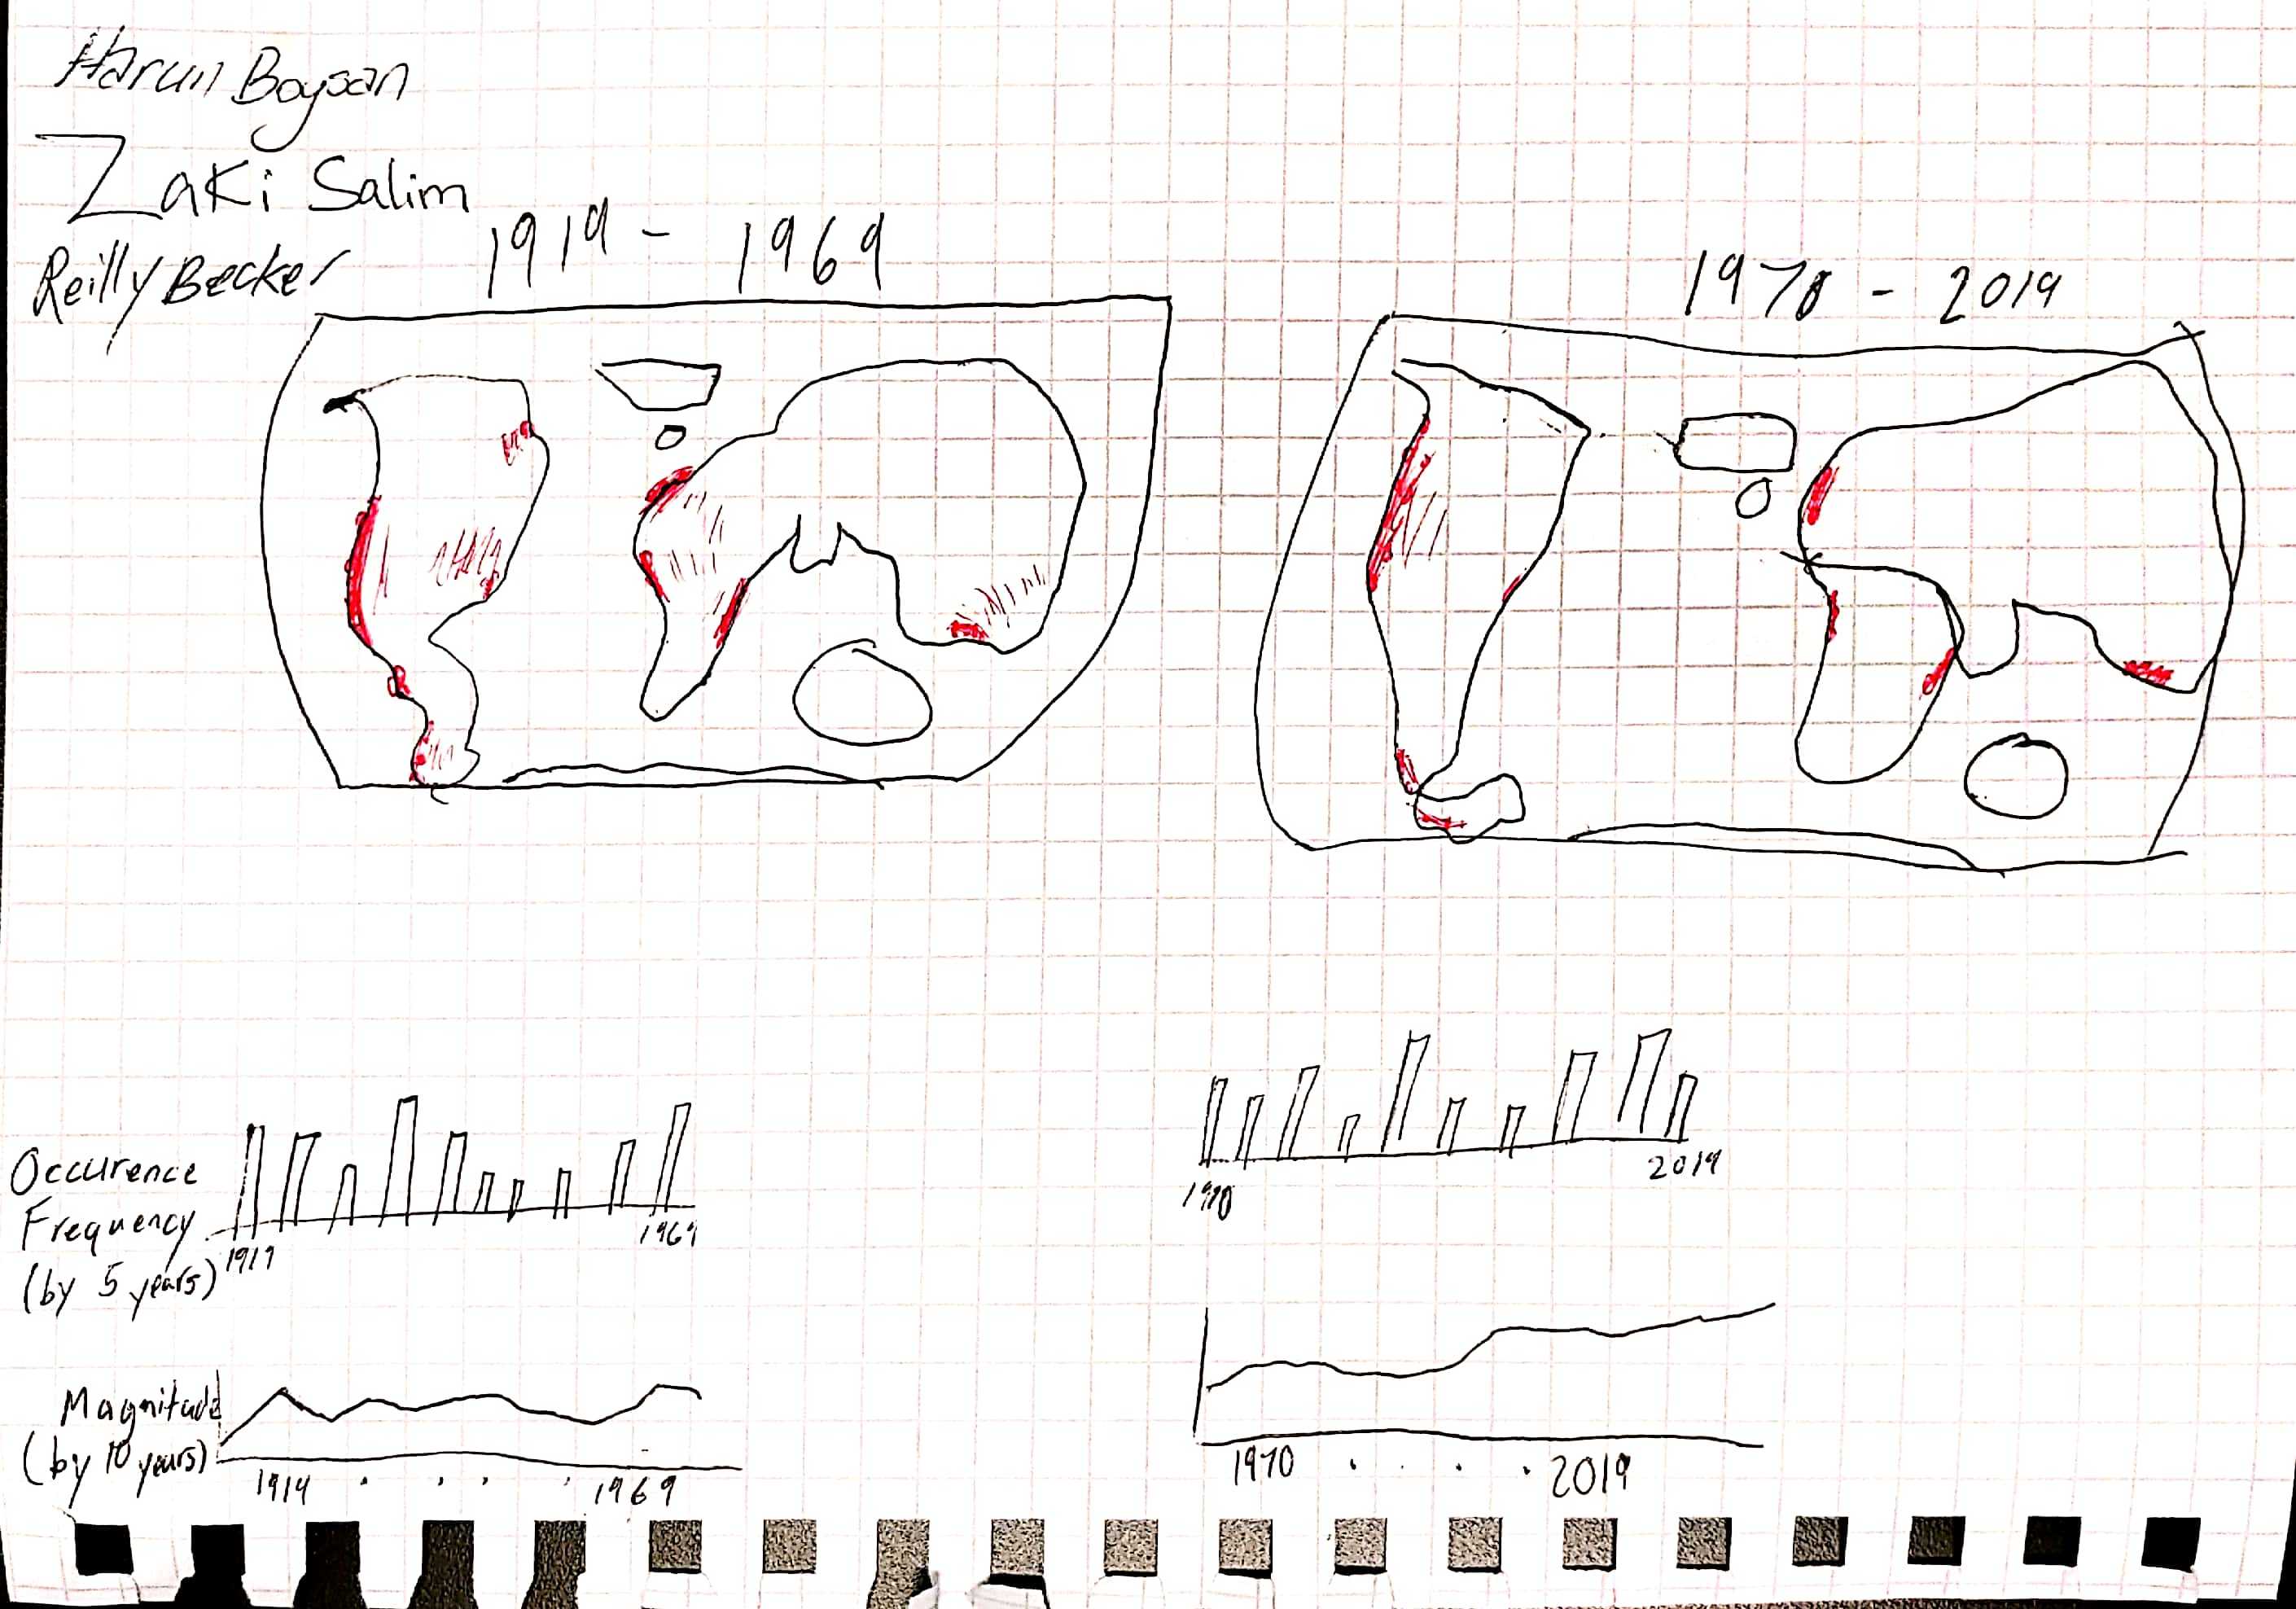 Harun Boysan
Zaki Salim
Reilly Becker
1919 - 1969
1970 - 2019
Occurence
Frequency
(by 5 years)
1919
1969
1970
2019
Magnitude
(by 10 years)
1919 . . . . 1969
1970 . . . . 2019